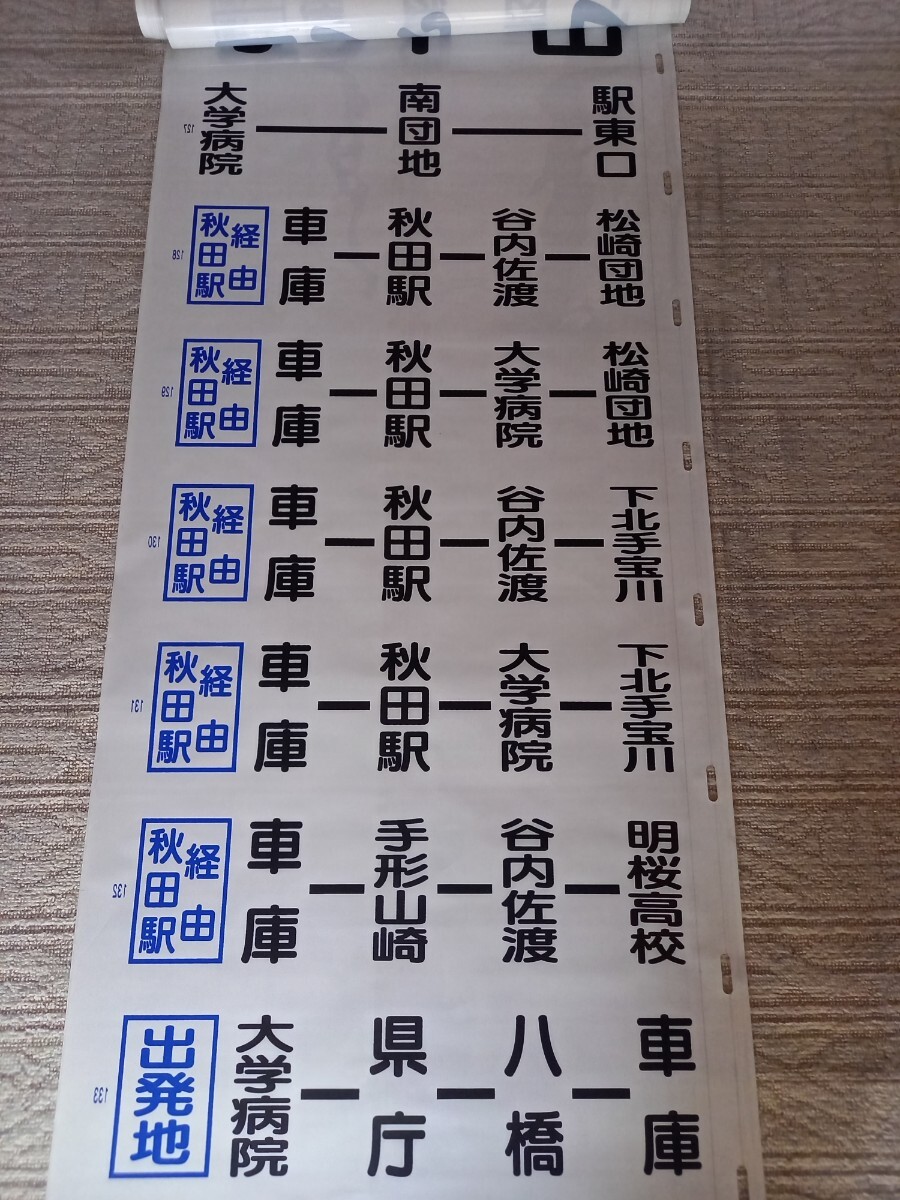 大学病院 ― 南団地 ― 駅東口
127
秋田駅経由 車庫 ― 秋田駅 ― 谷内佐渡 ― 松崎団地
128
秋田駅経由 車庫 ― 秋田駅 ― 大学病院 ― 松崎団地
129
秋田駅経由 車庫 ― 秋田駅 ― 谷内佐渡 ― 下北手宝川
130
秋田駅経由 車庫 ― 秋田駅 ― 大学病院 ― 下北手宝川
131
秋田駅経由 車庫 ― 手形山崎 ― 谷内佐渡 ― 明桜高校
132
出発地 大学病院 ― 県庁 ― 八橋 ― 車庫
133